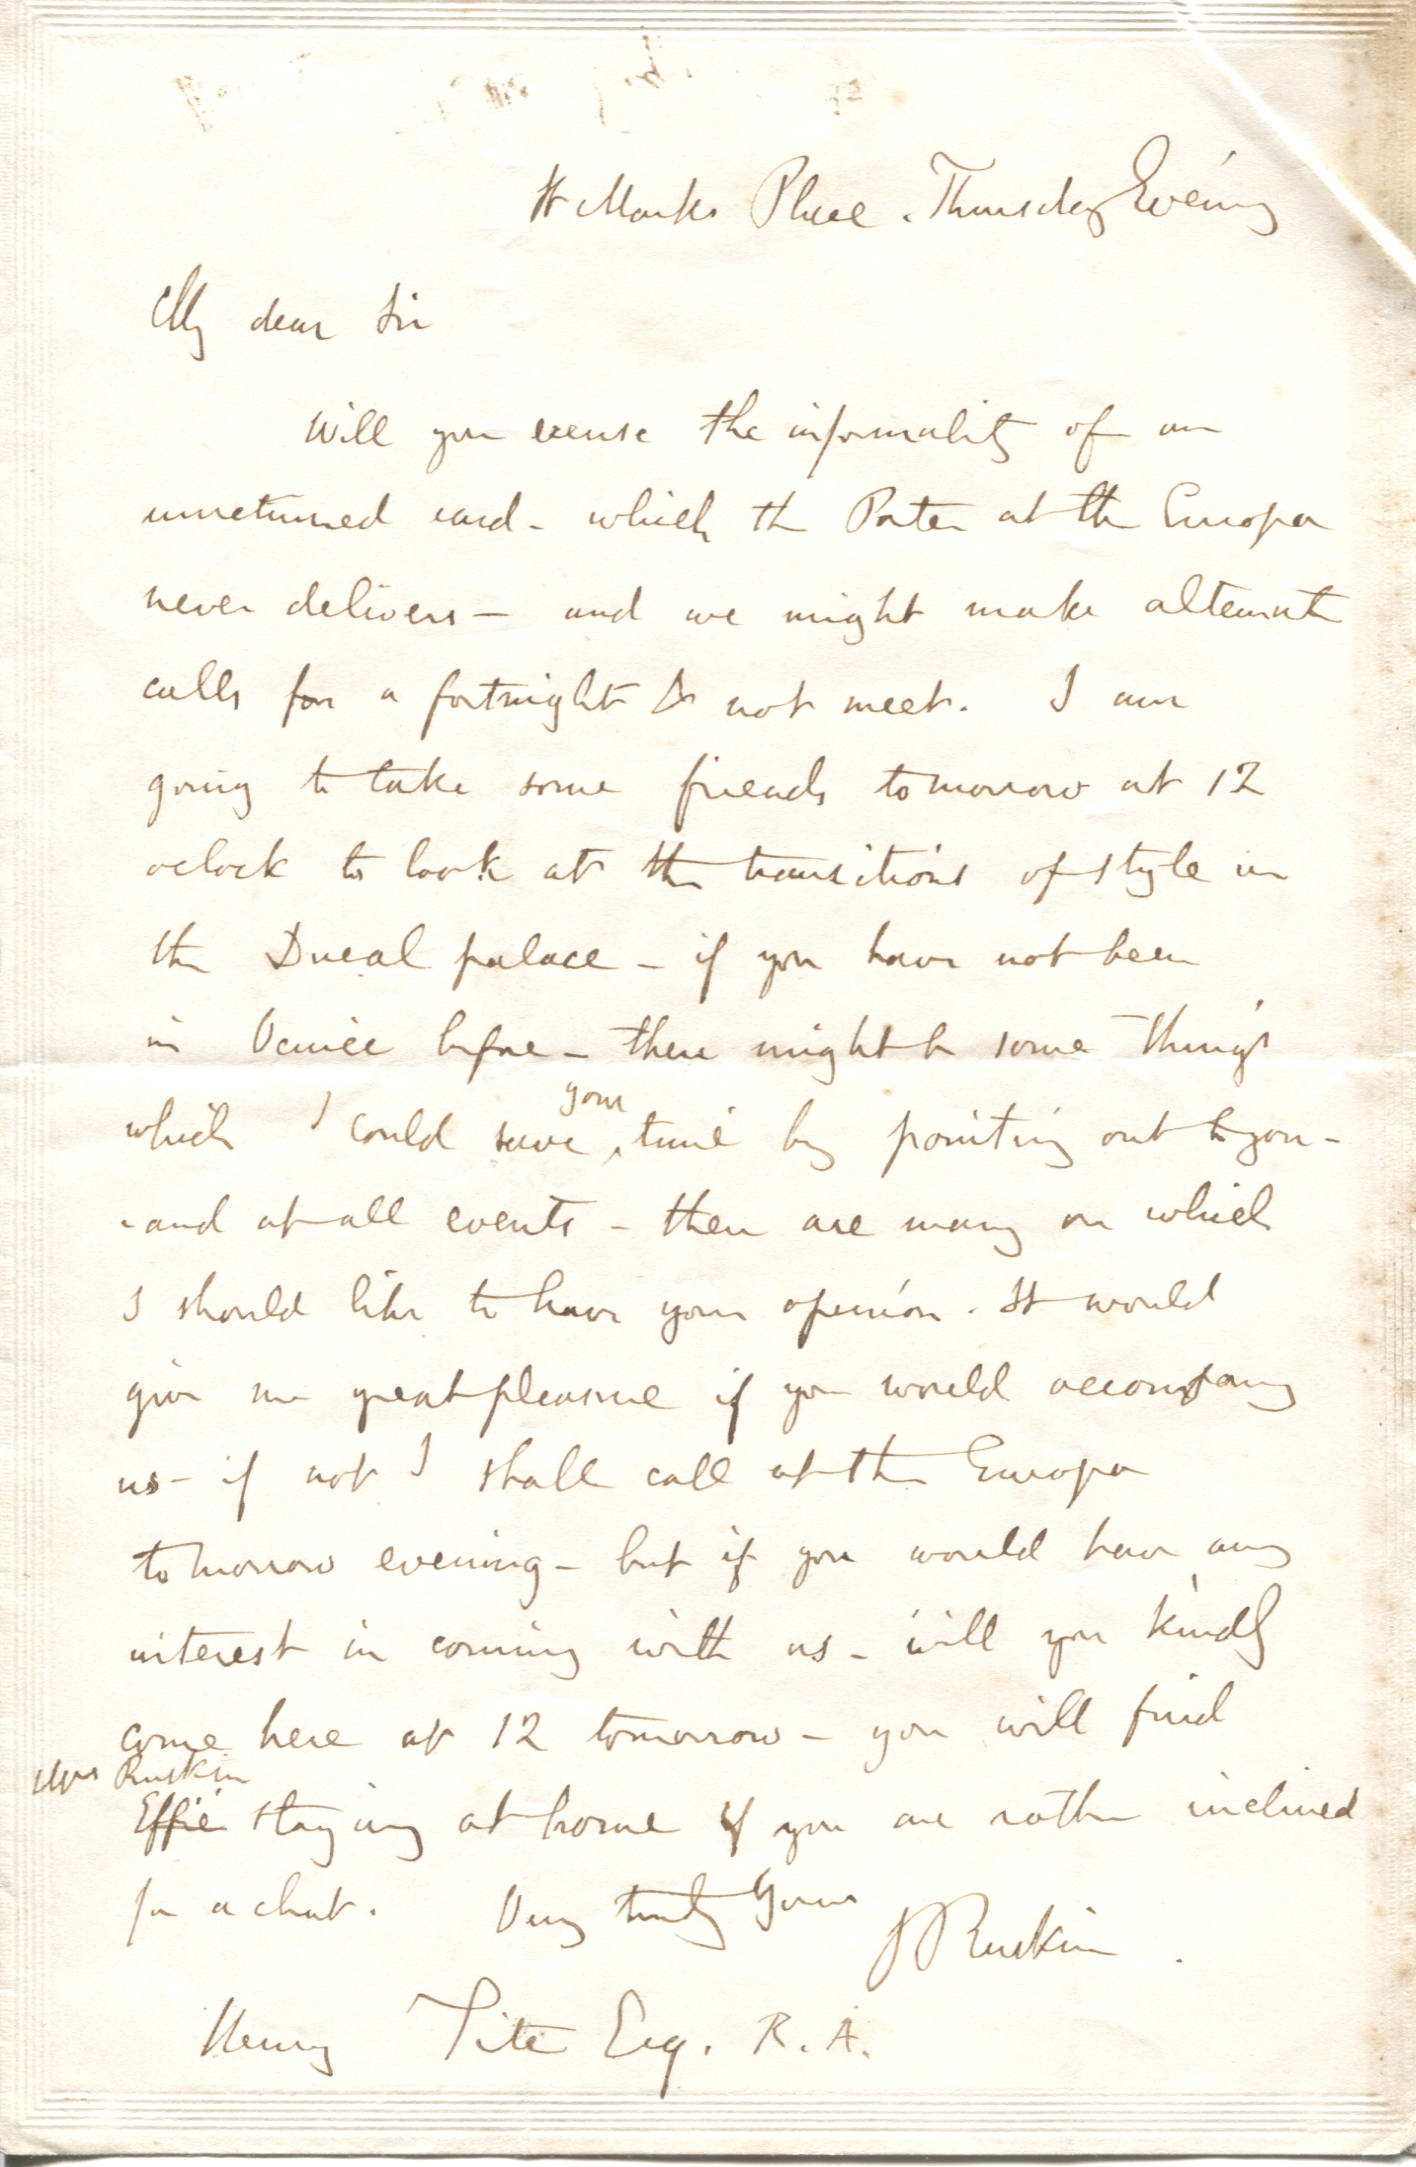 St Marks Place. Thursday Evening
My dear Sir
Will you excuse the informality of an
unreturned card - which the Porter at the Europa
never delivers - and we might make alternate
calls for a fortnight & not meet. I am
going to take some friends tomorrow at 12
oclock to look at the transitions of style in
the Ducal palace - if you have not been
in Venice before - there might be some things
which I could save your time by pointing out to you -
- and at all events - there are many on which
I should like to have your opinion. It would
give me great pleasure if you would accompany
us - if not I shall call at the Europa
tomorrow evening - but if you would have any
interest in coming with us - will you kindly
come here at 12 tomorrow - you will find
Mrs Ruskin
Effie staying at home if you are rather inclined
for a chat. Very truly Yours
J Ruskin.
Henry Tite Esq. R. A.